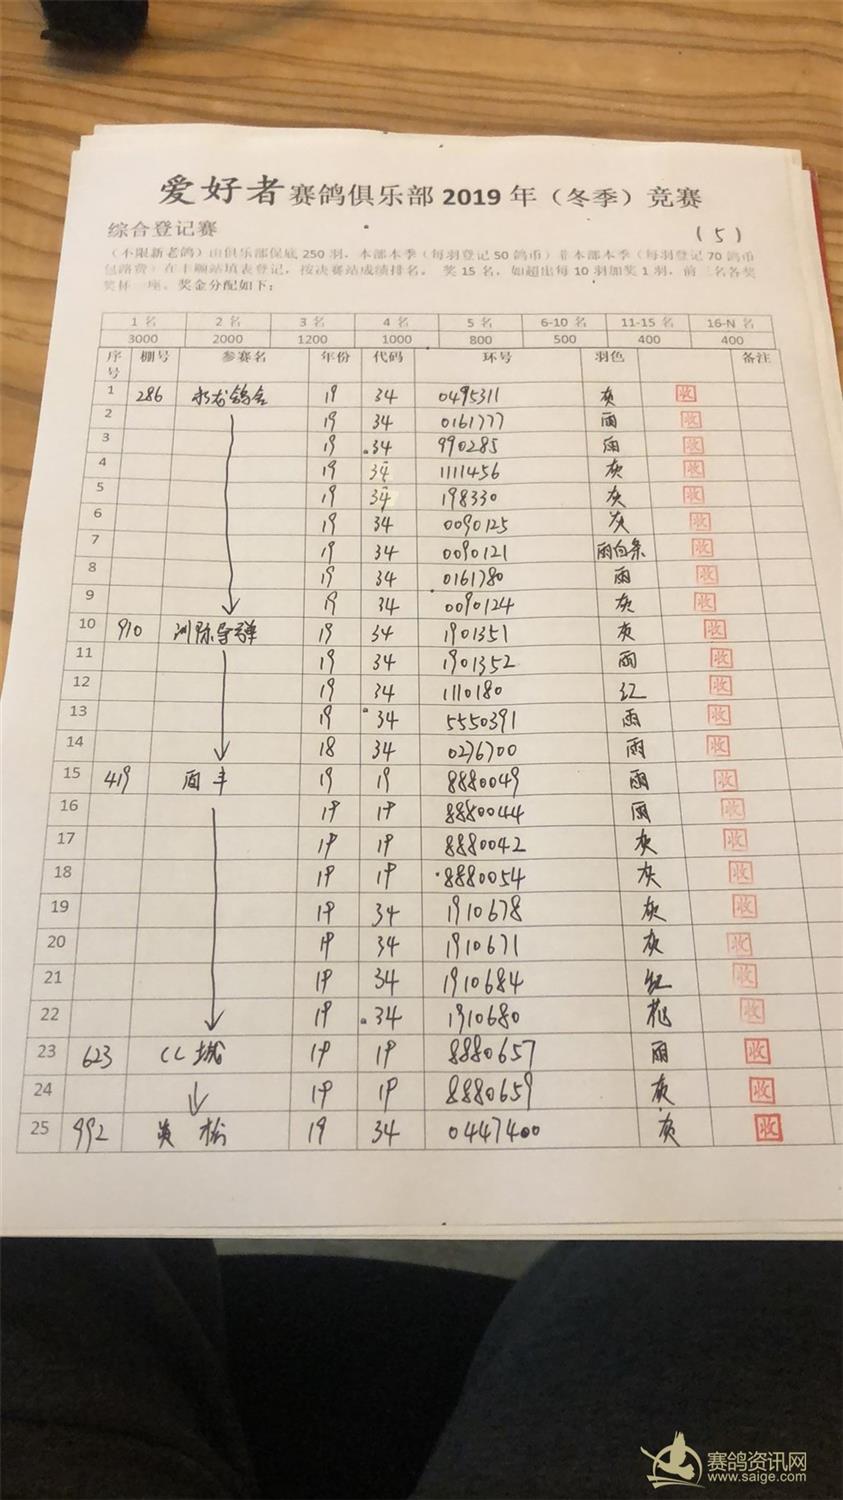 爱好者赛鸽俱乐部 2019 年（冬季）竞赛
综合登记赛 (5)
（不限新老鸽）由俱乐部保底 250 羽，本部本季（每羽登记 50 鸽币）非本部本季（每羽登记 70 鸽币
包路费）在丰顺站填表登记，按决赛站成绩排名。 奖 15 名，如超出每 10 羽加奖 1 羽，前三名各奖
奖杯一座。奖金分配如下：
1 名 2 名 3 名 4 名 5 名 6-10 名 11-15 名 16-N 名
3000 2000 1200 1000 800 500 400 400
序号 棚号 参赛名 年份 代码 环号 羽色 备注
1 286 19 34 0495311 灰 收
2 19 34 0161777 雨 收
3 19 34 990285 雨 收
4 19 34 1111456 灰 收
5 19 34 198330 灰 收
6 19 34 0090125 灰 收
7 19 34 0090121 雨白条 收
8 19 34 0161780 雨 收
9 19 34 0090124 灰 收
10 910 洲际导弹 19 34 1901351 灰 收
11 19 34 1901352 雨 收
12 19 34 1110180 红 收
13 19 34 5550391 雨 收
14 18 34 0276700 雨 收
15 419 19 19 8880049 雨 收
16 19 19 8880044 雨 收
17 19 19 8880042 灰 收
18 19 19 8880054 灰 收
19 19 34 1910678 灰 收
20 19 34 1910671 灰 收
21 19 34 1910684 红 收
22 19 34 1910680 花 收
23 623 CL城 19 19 8880657 雨 收
24 19 19 8880659 灰 收
25 992 19 34 0447400 灰 收
赛鸽资讯网
www.saige.com